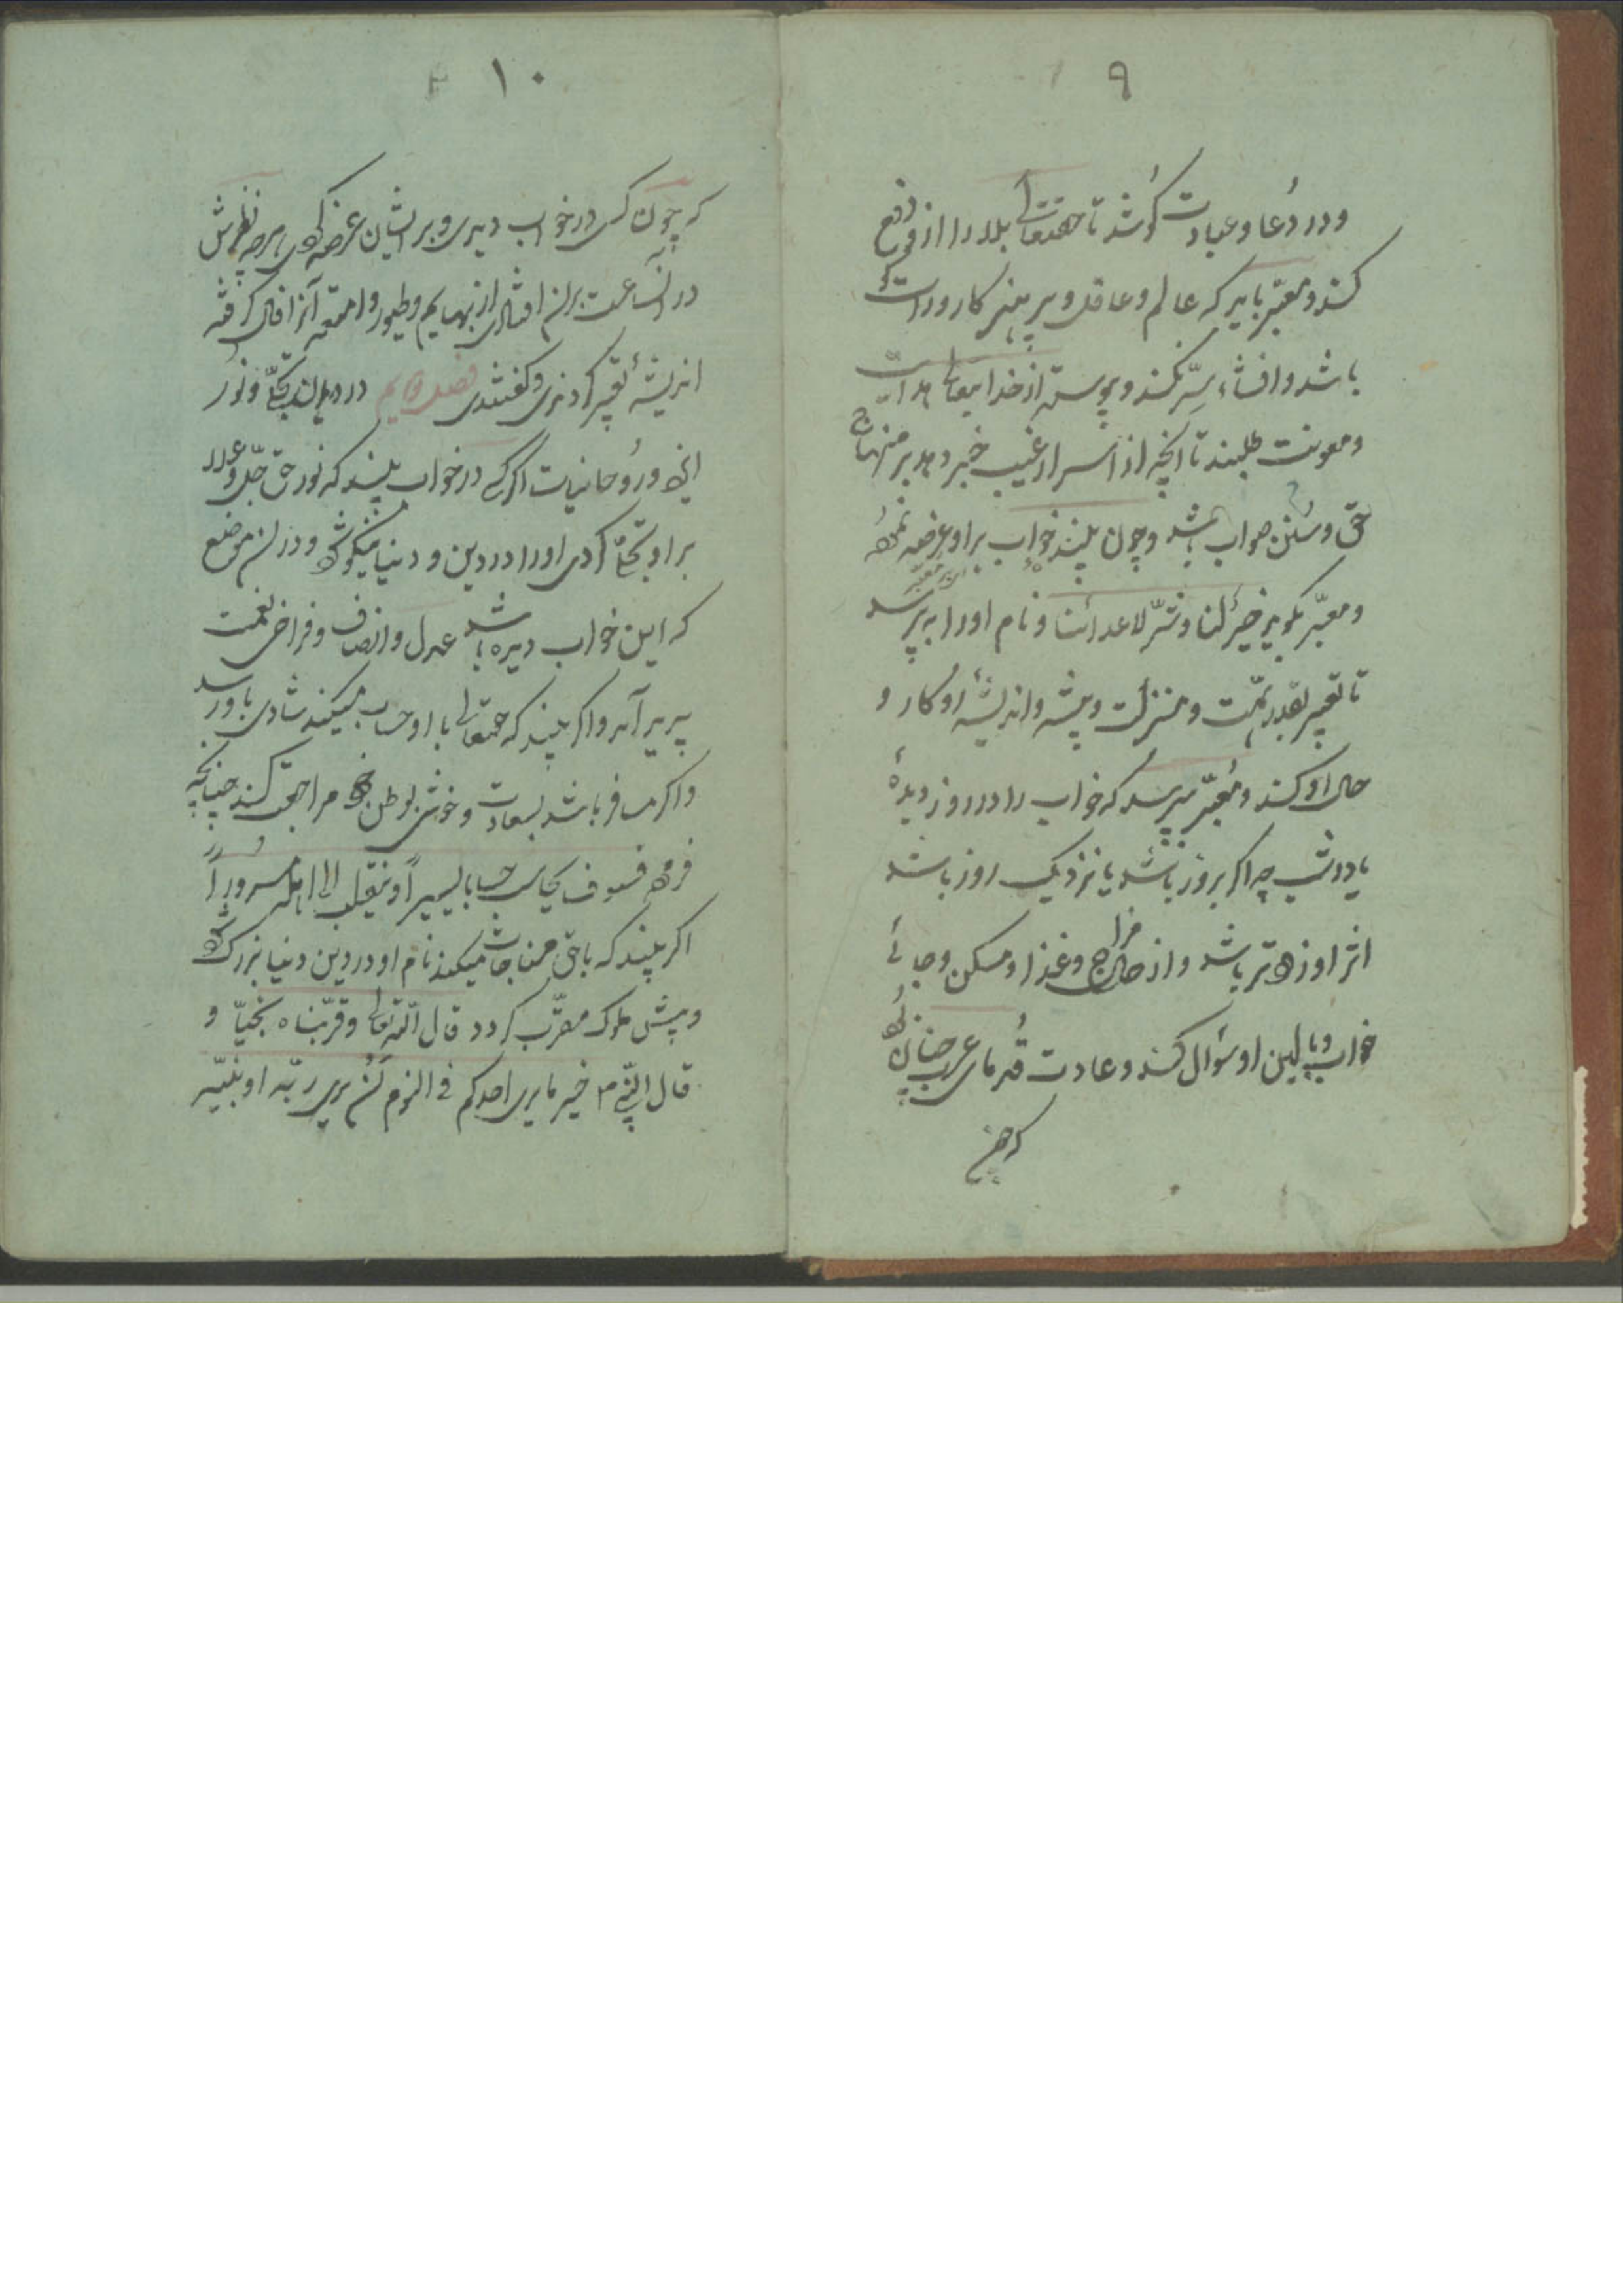 ۹
و در دُعا و عبادت کوُشد تا حقتعالی بلا را از او دفع
کند و معبّر باید که عالم و عاقل و پرهیزکار و راست کو
باشد و افشاء سِرّ نکند و پیوسته از خدایتعالی هدایت
و معونت طلبد تا انچه از اسرار غیب خبر دهد بر منهاج
حق و سُنن صواب باشد و چون بیننده خواب بر او عرضه
و معبّر بکوید خیرٌ لنا و شرّ لاعدائنا و نام او را بپرسد
تا تعبیر بقدر همّت و منزلت و پیشه و اندیشهٔ او کار و
حال او کند و مُعبّر بپرسد که خواب را در روز دیدهٔ
یا در شب چه اکر بروز باشد یا نزدیک روز باشد
اثر او زودتر باشد و از حال مزاج و غذا و مسکن و جائی
خواب و بالین او سؤال کند و عادت قُدمای عرب چنان بود
که چون
۱۰
که چون کسی در خواب دیدی و بر ایشان عرضه کردی هرچه نظرش
در آنساعت بران افتادی از بهایم و طیور و امتعه آنرا فال کرفته
اندیشهٔ تعبیر کردندی و کفتندی فصل در دیدن تجلّی و نور
الهی و روُحانیات اکر کسی در خواب بیند که نور حق جلّ و علا
بر او تجلّی کردی او را در دین و دنیا نیکو شود و در ان موضع
که این خواب دیده باشد عدل و انصاف و فراخی نعمت
پدید آید و اکر بیند که حقتعالی با او حساب میکند شادی باو رسد
و اکر مسافر باشد بسعادت و خوشی بوطن خود مراجعت کند چنانچه
فرمود فسوف یحاسب حسابا یسیراً و ینقلب الی اهله مسروراً
اکر بیند که با حق مناجات میکند نام او در دین و دنیا بزرک شود
و پیش ملوک مقرّب کردد قال اللّه تعالی و قرّبناه نجیّا و
قال النّبی م خیر ما یری احدکم فی النوم اَن یری ربّه او نبیّه